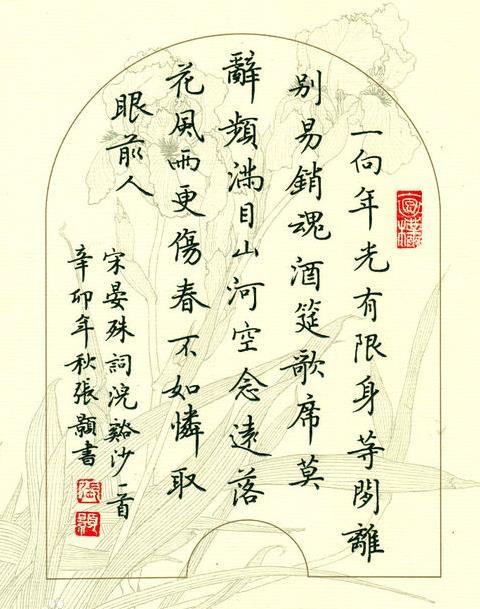 一向年光有限身等閒離
別易銷魂酒筵歌席莫
辭頻滿目山河空念遠落
花風雨更傷春不如憐取
眼前人
宋晏殊詞浣谿沙一首
辛卯年秋張顥書